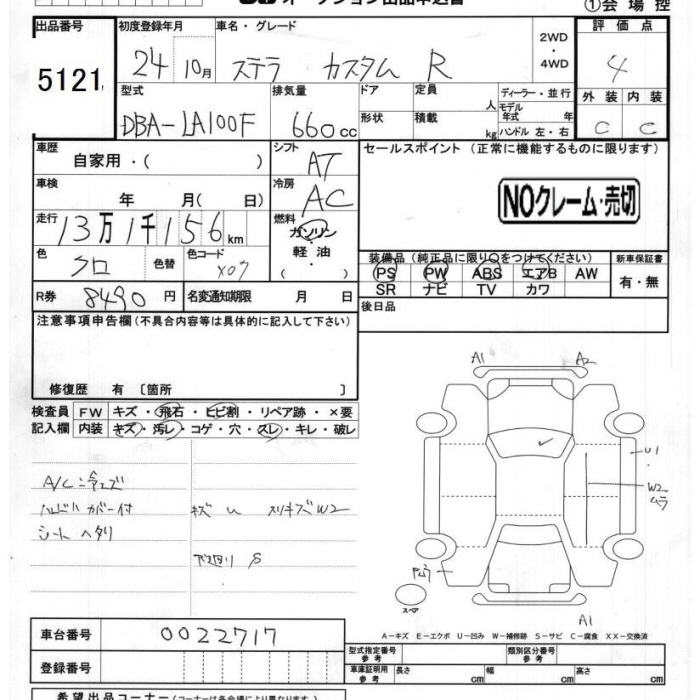 オークション出品申込書
①会場控
出品番号 初度登録年月 車名・グレード 2WD・4WD 評価点
5121 24 10月 ステラ カスタム R 4
型式 排気量 ドア 定員 人 ディーラー・並行 外装 内装
DBA-LA100F 660cc 形状 積載 kg モデル年式 年 ハンドル 左・右 C C
車歴 自家用・( ) シフト AT セールスポイント(正常に機能するものに限ります)
車検 年 月( 日) 冷房 AC
NOクレーム・売切
走行 13万1千156km 燃料 ガソリン・軽油・( )
色 クロ 色替 色コード X07
装備品(純正品に限り○をつけてください) 新車保証書
PS PW ABS エアB AW 有・無
SR ナビ TV カワ
R券 8490円 名変通知期限 月 日 後日品
注意事項申告欄(不具合内容等は具体的に記入して下さい)
修復歴 有 〔箇所 〕
検査員 FW キズ・飛石・ヒビ割・リペア跡・×要
記入欄 内装 キズ・汚レ・コゲ・穴・スレ・キレ・破レ
A1 A2
U1
W2
ムラ
A/C:冷えズ
ハンドルカバー付 キズ U スリキズW2
シート ヘタリ
下廻り S
スペア
A1
A-キズ E-エクボ U-凹み W-補修跡 S-サビ C-腐食 XX-交換済
車台番号 0022717
登録番号
型式指定番号 参考 類別区分番号 参考
車庫証明用 参考 長さ cm 幅 cm 高さ cm
希望出品コーナー(コーナーは各会場により異なります)